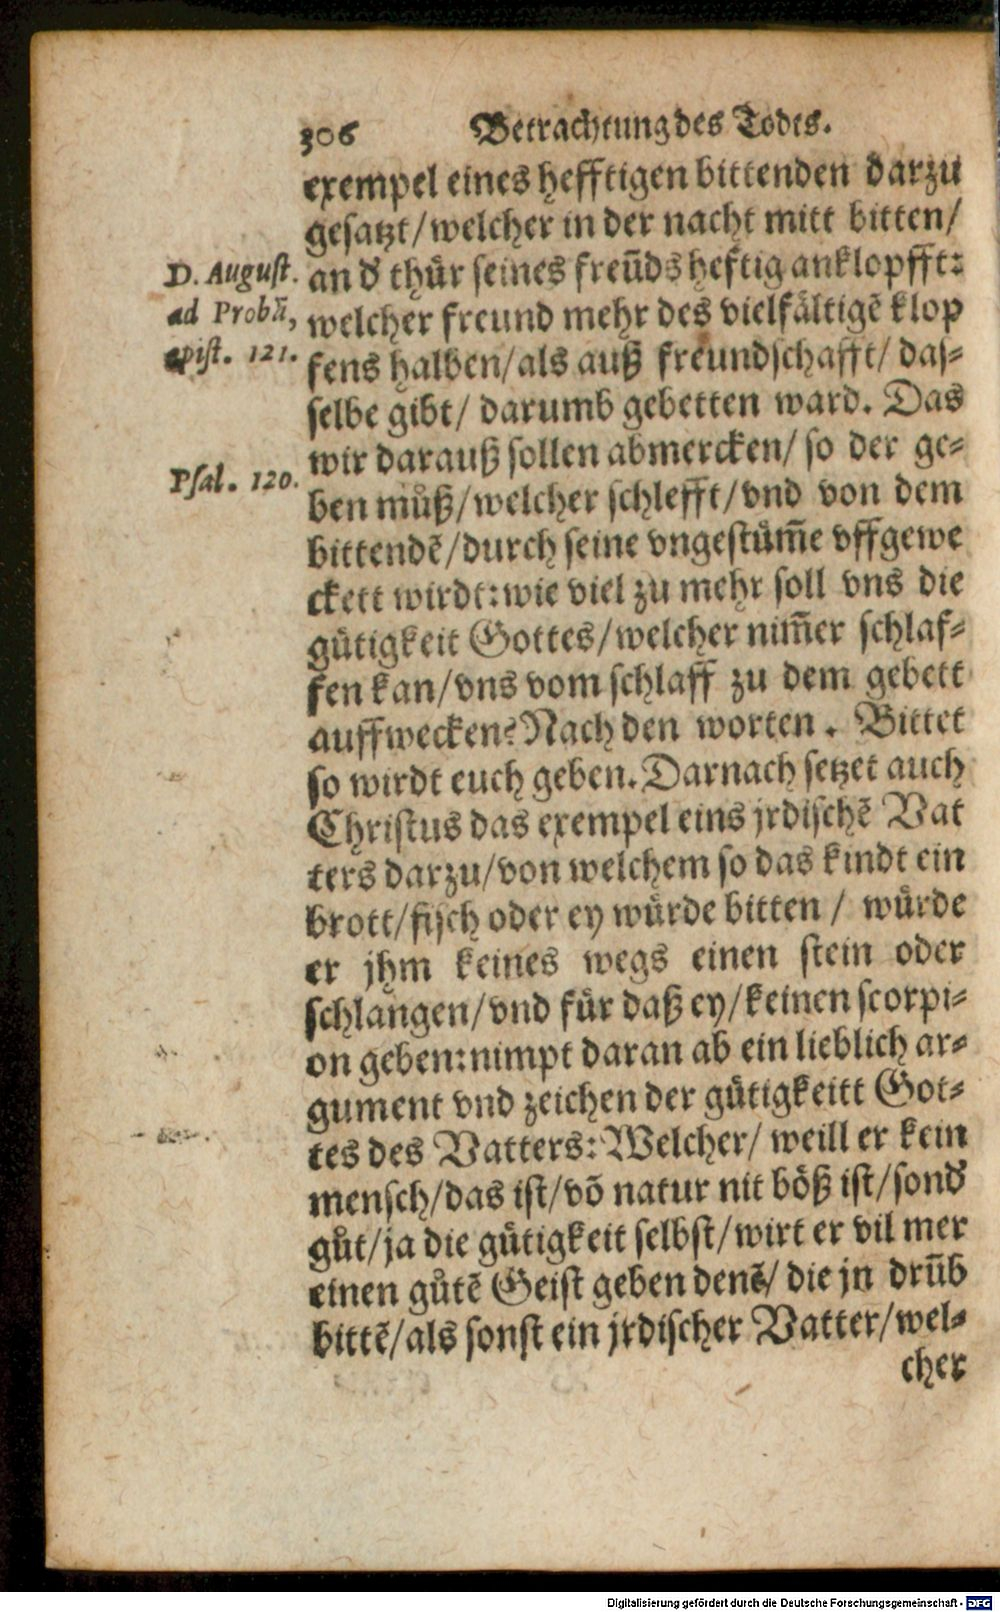 306 Betrachtung des Todts.
exempel eines hefftigen bittenden darzu
gesatzt/welcher in der nacht mitt bitten/
D. August.
ad Probā,
epist. 121.
an d' thür seines freūds heftig anklopfft:
welcher freund mehr des vielfältigē klop
fens halben/als auß freundschafft/ das-
selbe gibt/ darumb gebetten ward. Das
wir darauß sollen abmercken/ so der ge-
Psal. 120.
ben můß/welcher schlefft/vnd von dem
bittendē/durch seine vngestüm̄e vffgewe
ckett wirdt: wie viel zu mehr soll vns die
gütigkeit Gottes/welcher nim̄er schlaf-
fen kan/vns vom schlaff zu dem gebett
auffwecken? Nach den worten. Bittet
so wirdt euch geben. Darnach setzet auch
Christus das exempel eins jrdischē Vat
ters darzu/von welchem so das kindt ein
brott/fisch oder ey würde bitten / würde
er jhm keines wegs einen stein oder
schlangen/vnd für daß ey/keinen scorpi-
on geben: nimpt daran ab ein lieblich ar-
gument vnd zeichen der gütigkeitt Got-
tes des Vatters: Welcher/ weill er kein
mensch/das ist/vō natur nit böß ist/sond'
gůt/ja die gütigkeit selbst/wirt er vil mer
einen gůtē Geist geben denē/ die jn drūb
bittē/als sonst ein jrdischer Vatter/wel-
cher
Digitalisierung gefördert durch die Deutsche Forschungsgemeinschaft - DFG